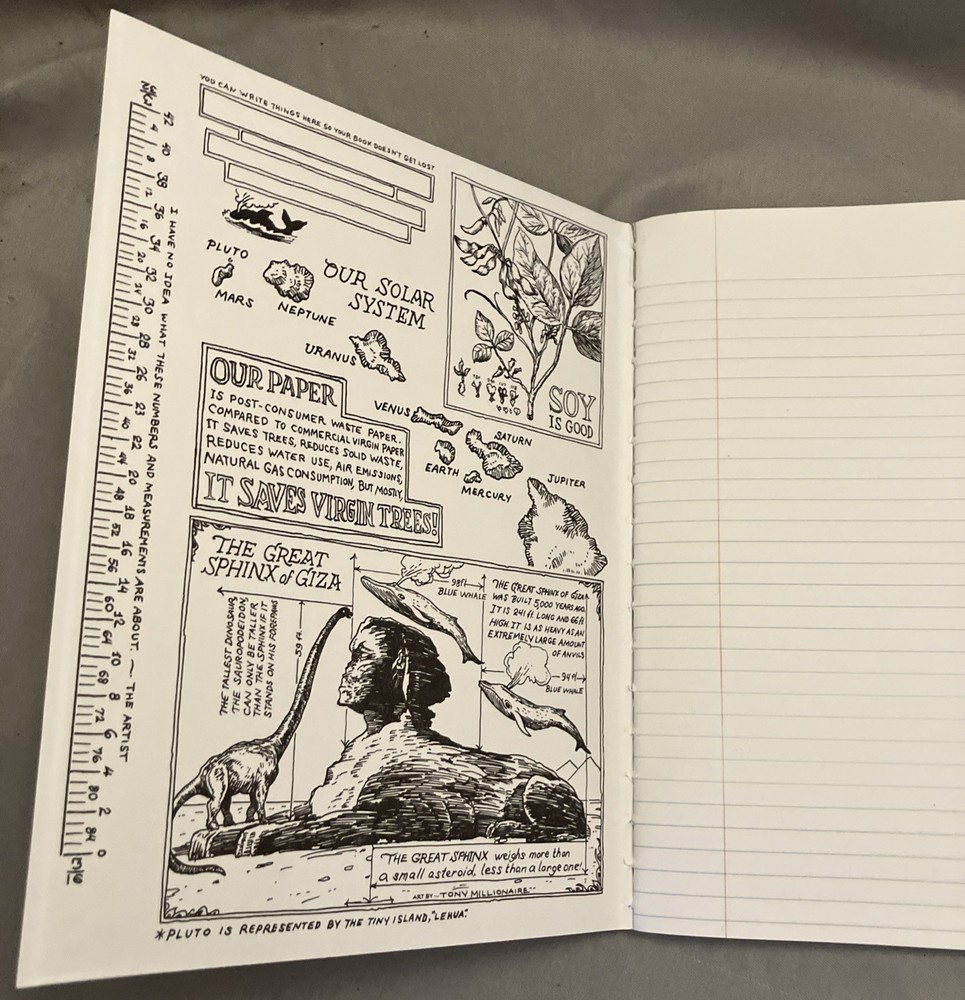 YOU CAN WRITE THINGS HERE SO YOUR BOOK DOESN'T GET LOST
42 40 38 36 34 32 30 28 26 23 22 20 18 16 14 12 10 8 6 4 2 0
4 8 12 16 20 24 28 32 36 40 44 48 52 56 60 64 68 72 76 80 84
I HAVE NO IDEA WHAT THESE NUMBERS AND MEASUREMENTS ARE ABOUT. ~ THE ARTIST
PLUTO
MARS
NEPTUNE
OUR SOLAR
SYSTEM
URANUS
VENUS
SATURN
EARTH
MERCURY
JUPITER
SOY
IS GOOD
OUR PAPER
IS POST-CONSUMER WASTE PAPER.
COMPARED TO COMMERCIAL VIRGIN PAPER
IT SAVES TREES, REDUCES SOLID WASTE,
REDUCES WATER USE, AIR EMISSIONS,
NATURAL GAS CONSUMPTION, BUT MOSTLY,
IT SAVES VIRGIN TREES!
THE GREAT
SPHINX of GIZA
THE TALLEST DINOSAUR,
THE SAUROPODEIDON,
CAN ONLY BE TALLER
THAN THE SPHINX IF IT
STANDS ON HIS FOREPAWS
59 ft.
98ft
BLUE WHALE
THE GREAT SPHINX OF GIZA
WAS BUILT 5,000 YEARS AGO.
IT IS 241 ft. LONG AND 66 ft.
HIGH. IT IS AS HEAVY AS AN
EXTREMELY LARGE AMOUNT
OF ANVILS
94 ft
BLUE WHALE
THE GREAT SPHINX weighs more than
a small asteroid, less than a large one!
ART BY ~ TONY MILLIONAIRE ~
*PLUTO IS REPRESENTED BY THE TINY ISLAND, "LEHUA".